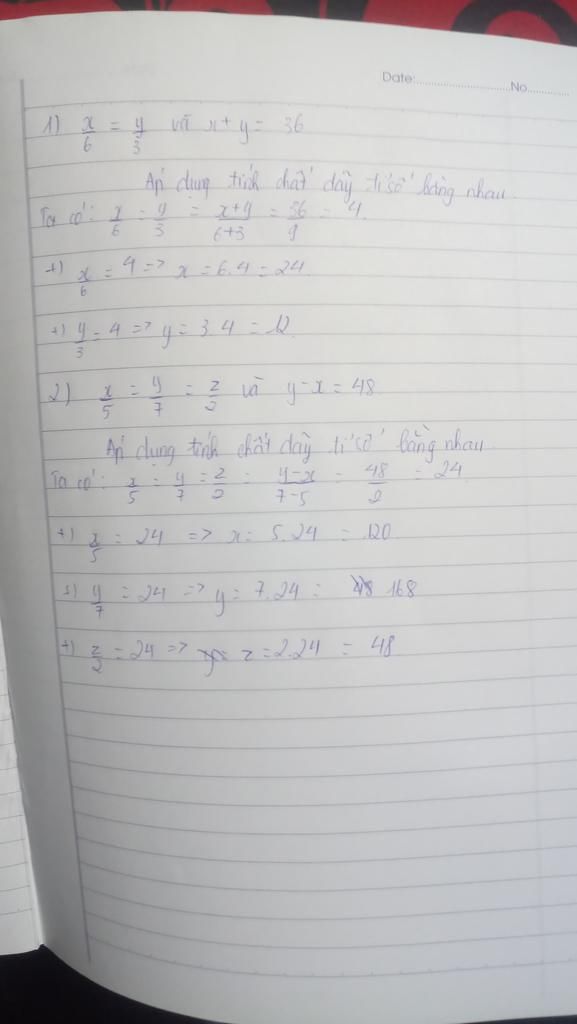 Date:............................No............
1) x/6 = y/3 và x + y = 36
Áp dụng tính chất dãy tỉ số bằng nhau
Ta có: x/6 = y/3 = x+y/6+3 = 36/9 = 4
+) x/6 = 4 => x = 6.4 = 24
+) y/3 = 4 => y = 3.4 = 12
2) x/5 = y/7 = z/2 và y-x = 48
Áp dụng tính chất dãy tỉ số bằng nhau
Ta có: x/5 = y/7 = z/2 = y-x/7-5 = 48/2 = 24
+) x/5 = 24 => x = 5.24 = 120
+) y/7 = 24 => y = 7.24 = 168
+) z/2 = 24 => z = 2.24 = 48